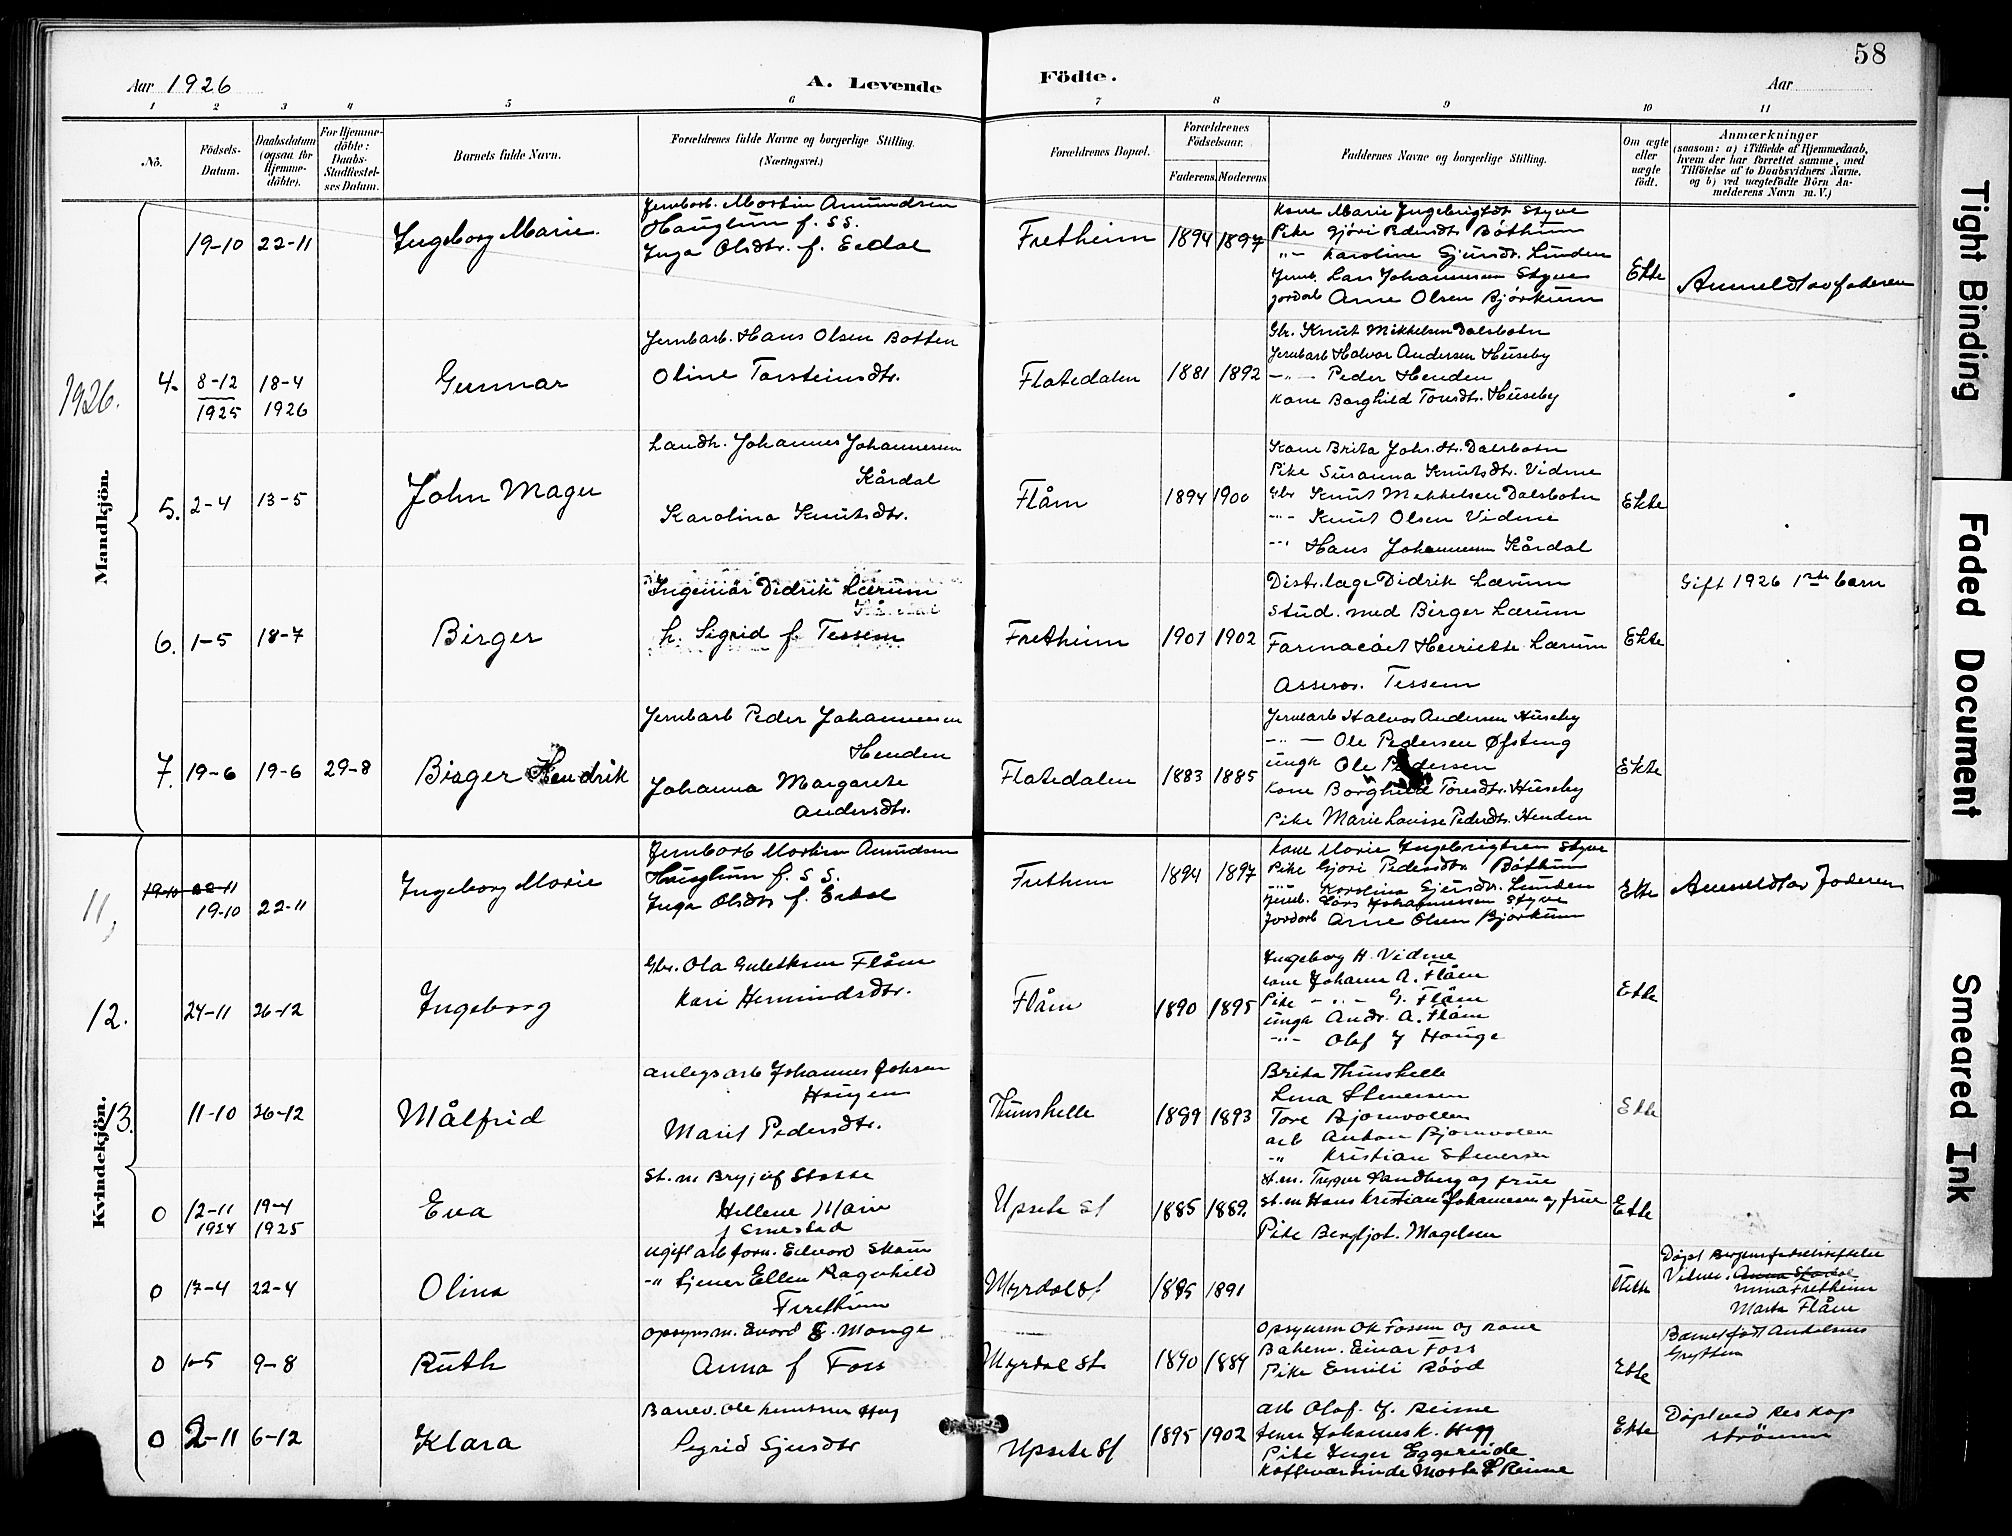 58
Aar 1926
A. Levende Födte.
Aar
1 2 3 4 5 6 7 8 9 10 11
No.
Födsels-Datum.
Daabsdatum (ogsaa for Hjemmedöbte).
For Hjemmedöbte: Daabs-Stadfæstelses Datum.
Barnets fulde Navn.
Forældrenes fulde Navne og borgerlige Stilling. (Næringsvei.)
Forældrenes Bopæl.
Forældrenes Födselsaar.
Faderens. Moderens.
Faddernes Navne og borgerlige Stilling.
Om ægte eller uægte födt.
Anmærkninger (saasom: a) i Tilfælde af Hjemmedaab, hvem der har forrettet samme, med Tilföielse af to Daabsvidners Navne, og b) ved uægtefödte Börn Anmelderens Navn m. V.)
Mandkjön.
1926.
19-10 22-11 Ingeborg Marie.
Jernbarb. Martin Amundsen
Hauglum f. SS.
Inga Olsdtr. f. Eedal
Fretheim 1894 1897
Kone Marie Ingebrigtdt. Styve
Pike Gjöri Pedersdtr Böthum
"- Karoline Gjursdtr. Lunden
Jernb. Lars Johannesen Styve
Jordarb Arne Olsen Bjørkum
Ekte
Anmeldt av faderen
4. 8-12 1925 18-4 1926 Gunnar
Jernbarb. Hans Olsen Botten
Oline Torsteinsdtr.
Flatedalen 1881 1892
Gbr. Knut Mikkelsen Dalsbotn
Jernbarb Halvor Andersen Huseby
-"- Peder Henden
Kone Borghild Toresdtr. Huseby
5. 2-4 13-5 John Magn
Landh. Johannes Johannessen
Kårdal
Karolina Knutsdtr.
Flåm 1894 1900
Kone Brita Johs.dtr. Dalsbotn
Pike Susanna Knutsdtr. Vidme
Gbr Knut Mikkelsen Dalsbotn
-"- Knut Olsen Vidme
-"- Hans Johannessen Kårdal
Ekte
6. 1-5 18-7 Birger
Ingeniör Didrik Lærum
h. Sigrid f. Tessem
Fretheim 1901 1902
Distr.læge Didrik Lærum
Stud. med Birger Lærum
Farmacöit Henriette Lærum
Assesor. Tessem
Ekte
Gift 1926 1ste barn
7. 19-6 19-6 29-8 Birger Hendrik
Jernbarb Peder Johannessen
Henden
Johanna Margarete
Andersdtr.
Flatedalen 1883 1885
Jernbarb Halvor Andersen Huseby
-"- Ole Pedersen Øfsteng
ungk Ole Pedersen
Kone Borghild Toresdtr. Huseby
Pike Marie Lovisse Pedersdtr. Henden
Ekte
Kvindekjön.
11, 19-10 22-11
19-10 22-11 Ingeborg Marie
Jernbarb Martin Amundsen
Hauglum f. SS.
Inga Olsdtr f. Eedal
Frethem 1894 1897
Kone Marie Ingebrigtsen Styve
Pike Gjöri Pedersdtr Böthum
-"- Karolina Gjursdtr. Lunden
Jernb. Lars Johannessen Styve
Jordarb Arne Olsen Bjørkum
Ekte
Anmeldt av Faderen
12. 24-11 26-12 Ingeborg
Gbr. Ola Guleiksen Flåm
Kari Hermundsdtr.
Flåm 1890 1895
Ingeborg H. Vidme
Kone Johanna A. Flåm
Pike -"- G. Flåm
ungk Andr. A. Flåm
-"- Olaf J Hauge
Ekte
13. 11-10 26-12 Målfrid
Anlegsarb Johannes Johsen
Haugen
Marit Pedersdtr.
Thunshelle 1889 1893
Brita Thunshelle
Lina Stenersen
Tore Bjørnvollen
arb Anton Bjornvolen
-"- Kristian Stenersen
Ekte
0 12-11 1924 19-4 1925 Eva
St.m Brynjulf Stokke
Hellene Marie
f Smestad
Upsete St 1885 1889.
St.m. Trygve Sandberg og frue
St.m Hans Kristian Johanesen og frue
Pike Bergljot. Magelsen
Ekte
0 17-4 22-4 Olina
ugift arb.form. Edvard Skaim
-"- tjener Ellen Ragnhild
Fretheim
Myrdal st 1885 1891
Uekte
Døpt Bergensfødselstiftelse
Vitner.
Anna Fretheim
Marta Flåm
0 1-5 9-8 Ruth
Opsynsm. Evard E. Monge
Anna f Foss
Myrdal St. 1890 1884
Opsynsm Ole Fossen og kone
Bahem. Einar Foss
Pike Emili Rööd
Ekte
Barnet født Andalsnes
Grytten
0 2-11 6-12 Klara
Banev. Ole Knutsen Heg
Sigrid Sjursdtr
Upsete St 1895 1902
arb Olaf. J. Reime
tener Johannes K. Hegg
Pike Inger Eggereide
Koffevartinde Marta L Reime
Ekte
Døpt ved Res Kap
Strömme
Tight Binding
Faded Document
Smeared Ink